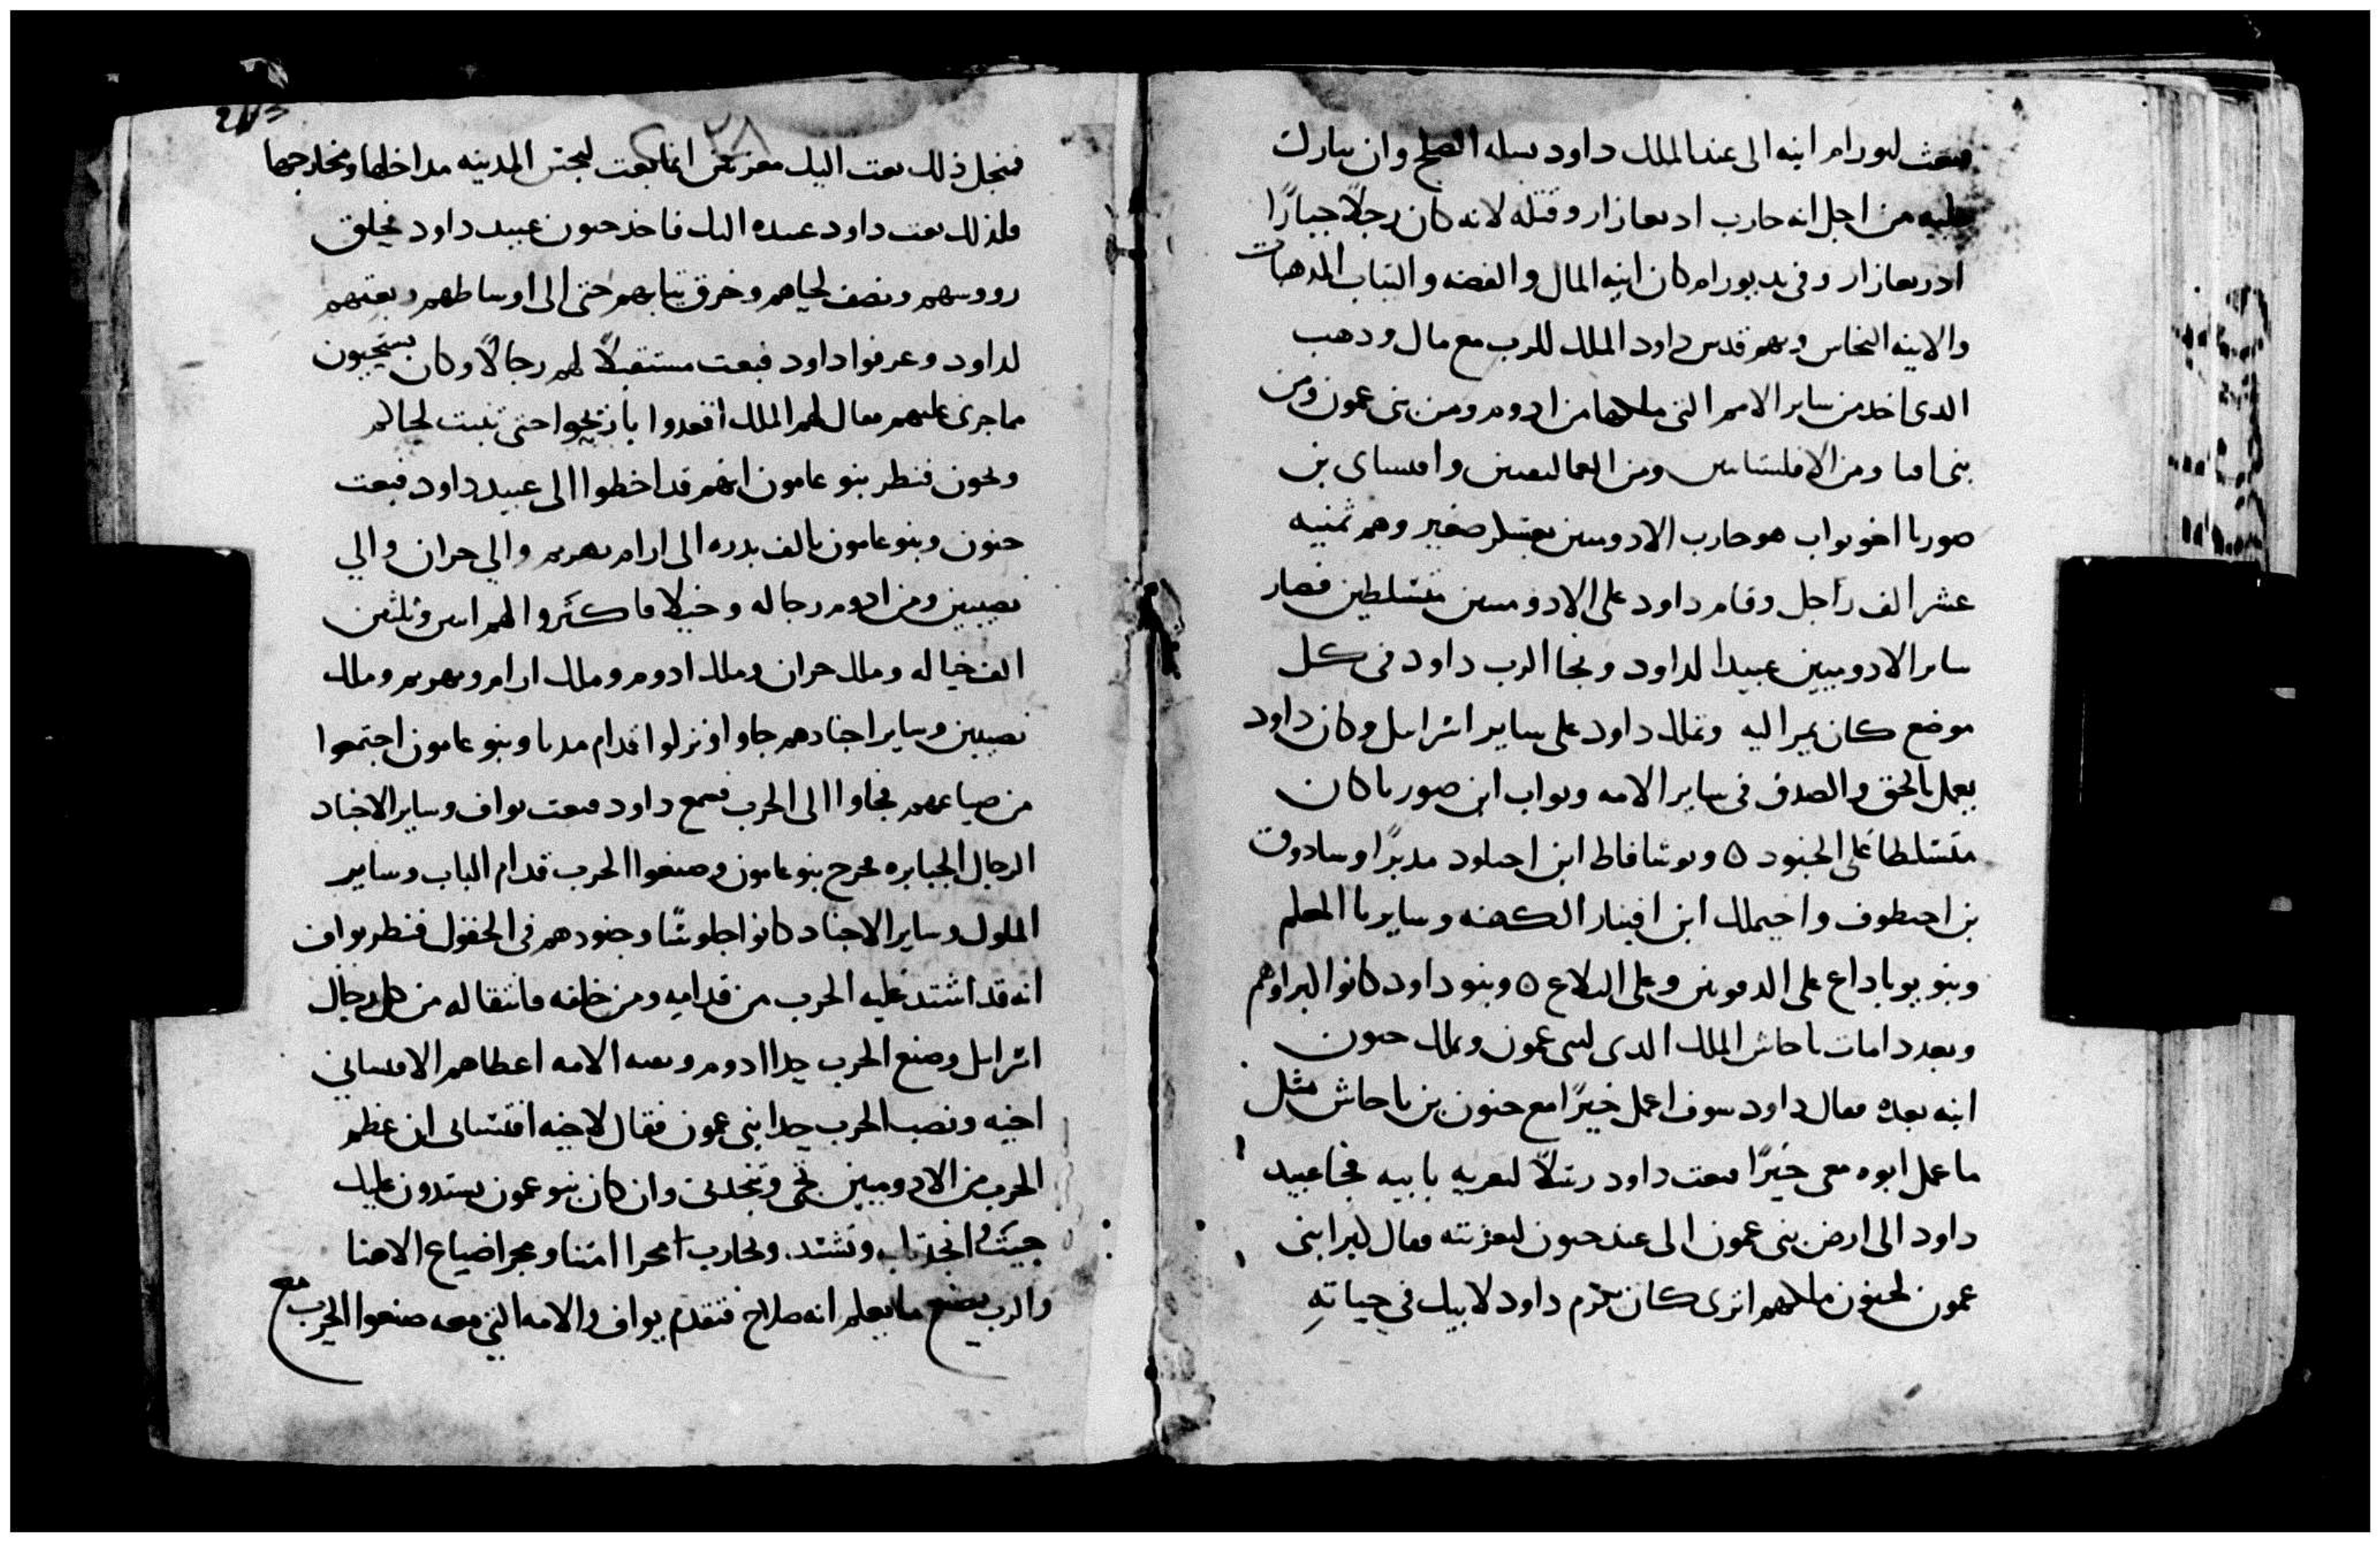 فبعث لبورام ابنه الى عند الملك داود يسله الصلح وان يبارك
عليه من اجل انه حارب ادرعازار وقتله لانه كان رجلًا جبارًا
ادرعازار وفي يد يورام كان انيه المال والفضه والتياب المدهبات
والانيه النحاس وبهم قدس داود الملك للرب مع مال ودهب
الدى اخد من ساير الامم التي ملكها من ادوم ومن بنى عمون ومن
بنى اما ومن الافلستانيين ومن العمالقيين وافيساى بن
صوريا اخو يواب هو حارب الادوميين بعسكر صغير وهم تمنيه
عشر الف راجل وقام داود على الادوميين متسلطين فصار
ساير الادوميين عبيدا لداود ونجا الرب داود فى كل
موضع كان يمر اليه وتملك داود على ساير اسرايل وكان داود
يعمل بالحق والصدق في ساير الامه ويواب ابن صوريا كان
متسلطا على الجنود ٥ ويوشافاط ابن احيلود مدبرًا وسادوق
بن احيطوف واخيملك ابن افيتار الكهنه وسايريا المعلم
وبنو يوياداع على الدمويين وعلى البلاع ٥ وبنو داود كانوا البراوهم
وبعد دا مات ناحاش الملك الدى لبنى عمون وملك حنون
ابنه بعده فقال داود سوف اعمل خيرًا مع حنون بن ناحاش مثل
ما عمل ابوه معى خيرًا فبعت داود رسلًا لتعزيه بابيه فجا عبيد
داود الى ارض بنى عمون الى عند حنون لتعزيته فقال كبرا بنى
عمون لحنون ملكهم اترى كان يكرم داود لابيك في حياتهِ
٢٨
فمن اجل ذلك بعت اليك معزيين انما بعت ليجتس المدينه مداخلها ومخارجها
فلذلك بعت داود عبيده اليك فاخد حنون عبيد داود فحلق
رووسهم ونصف لحياهم وخرق تيابهم حتى الى اوساطهم وبعتهم
لداود وعرفوا داود فبعت مستقبلًا لهم رجالًا وكان يستحيون
مما جرى عليهم فقال لهم الملك اقعدوا باريحوا حتى تنبت لحاكم
وتجون فنظر بنو عامون انهم قد اخطوا الى عبيد داود فبعت
حنون وبنو عامون بالف بدره الى ارام نهريم والي حران والي
نصيبين ومن ادوم رجاله وخيلا فاكتروا لهم اتنين وتلتين
الف خياله وملك حران وملك ادوم وملك ارام ونهريم وملك
نصيبين وساير اجنادهم جاوا ونزلوا قدام مدبا وبنو عامون اجتمعوا
من ضياعهم فجاوا الى الحرب فسمع داود فبعت يواف وساير الاجناد
الرجال الجبابره فخرج بنو عامون وصنعوا الحرب قدام الباب وساير
الملوك وساير الاجناد كانوا جلوسًا وجنودهم في الحقول فنظر يواف
انه قد اشتد عليه الحرب من قدامهِ ومن خلفه فانتقا له من كل رجال
اسرايل وصنع الحرب حدا ادوم وبقيه الامه اعطاهم لافيساي
اخيه ونصب الحرب حدا بنى عمون فقال لاخيه افيساى ان عظم
الحرب من الادوميين تجى وتنجدنى وان كان بنو عمون يشتدون عليك
جيت انجدتك وتشتد ونحارب امتنا وضياع الاهنا
والرب يصنع ما يعلم انه صلاح فتقدم يواف والامه التي معه صنعوا الحرب مع